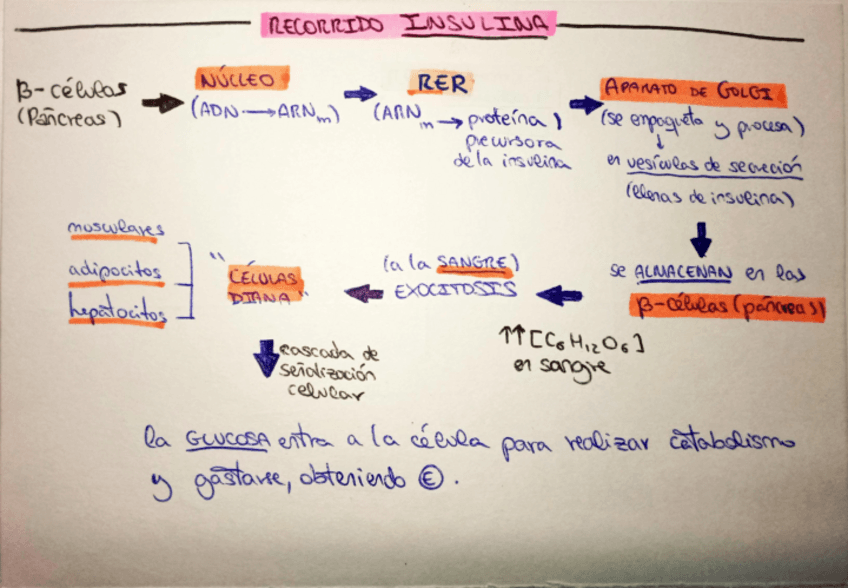 RECORRIDO INSULINA
β-células
(Páncreas)
NÚCLEO
(ADN → ARNm)
RER
(ARNm → proteína)
precursora
de la insulina
APARATO DE GOLGI
(se empaqueta y procesa)
↓
en vesículas de secreción
(llenas de insulina)
se ALMACENAN en las
β-células (páncreas)
↑↑ [C6H12O6]
en sangre
(a la SANGRE)
EXOCITOSIS
"CÉLULAS
DIANA"
musculares
adipocitos
hepatocitos
cascada de
señalización
celular
la GLUCOSA entra a la célula para realizar catabolismo
y gastarse, obteniendo Ⓔ.